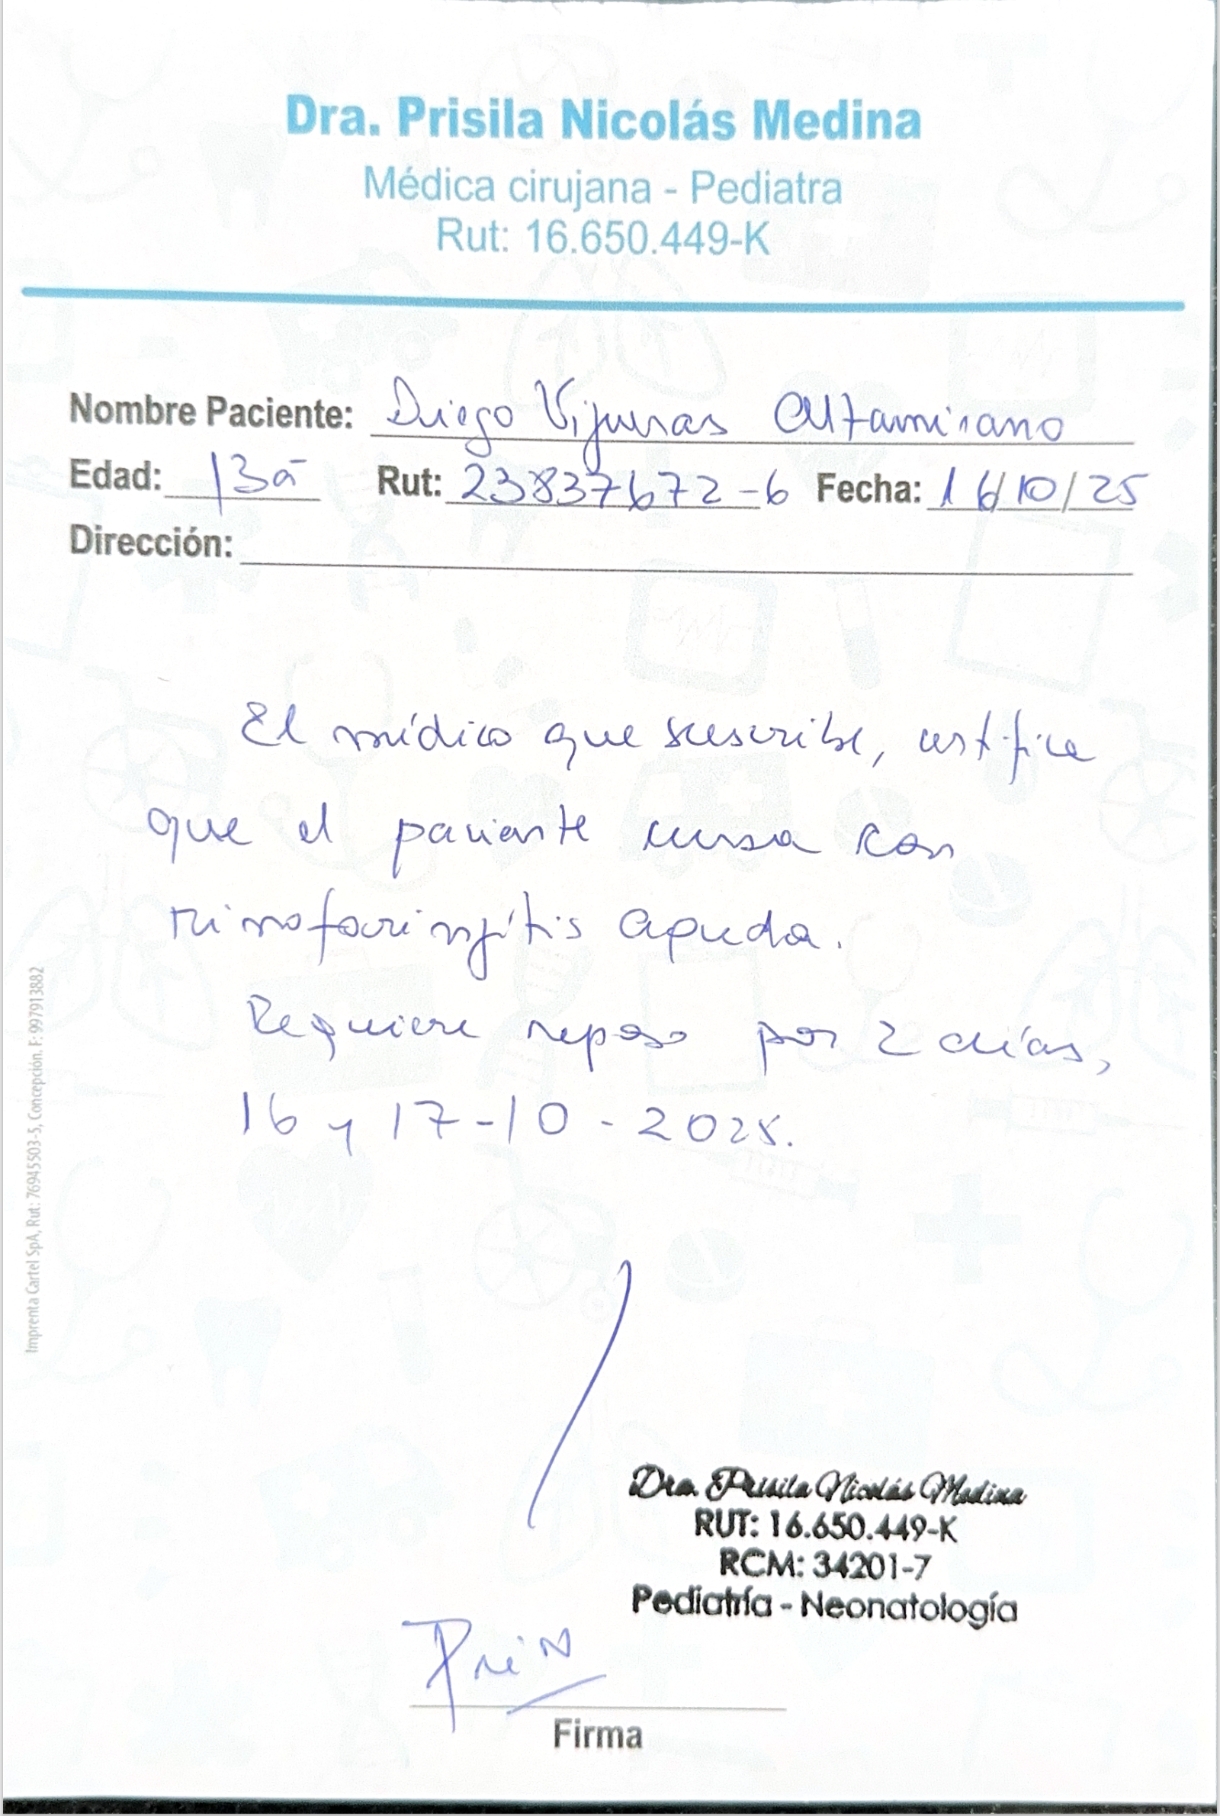 Dra. Prisila Nicolás Medina
Médica cirujana - Pediatra
Rut: 16.650.449-K
Nombre Paciente: Diego Altamirano
Edad: 13a Rut: 23837672-6 Fecha: 16/10/25
Dirección:
El médico que suscribe, certifica
que el paciente cursa con
rinofaringitis aguda.
Requiere reposo por 2 días,
16 y 17-10-2025.
Dra. Prisila Nicolás Medina
RUT: 16.650.449-K
RCM: 34201-7
Pediatría - Neonatología
Firma
Imprenta Cartel SpA, Rut: 76945503-5, Concepción. F: 997913882